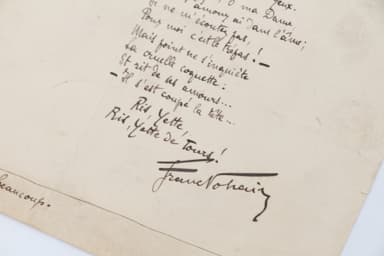 yeux.
ô ma Dame
amour ai dans l'âme;
Si ne m'écoutez pas,
Pour moi c'est le trépas! —
Mais point ne s'inquiète
La cruelle coquette:
Et rit de les amours...
— Il s'est coupé la tête...
Ris Yette
Ris, Yette de Tours!
Franc Nohain
beaucoup.